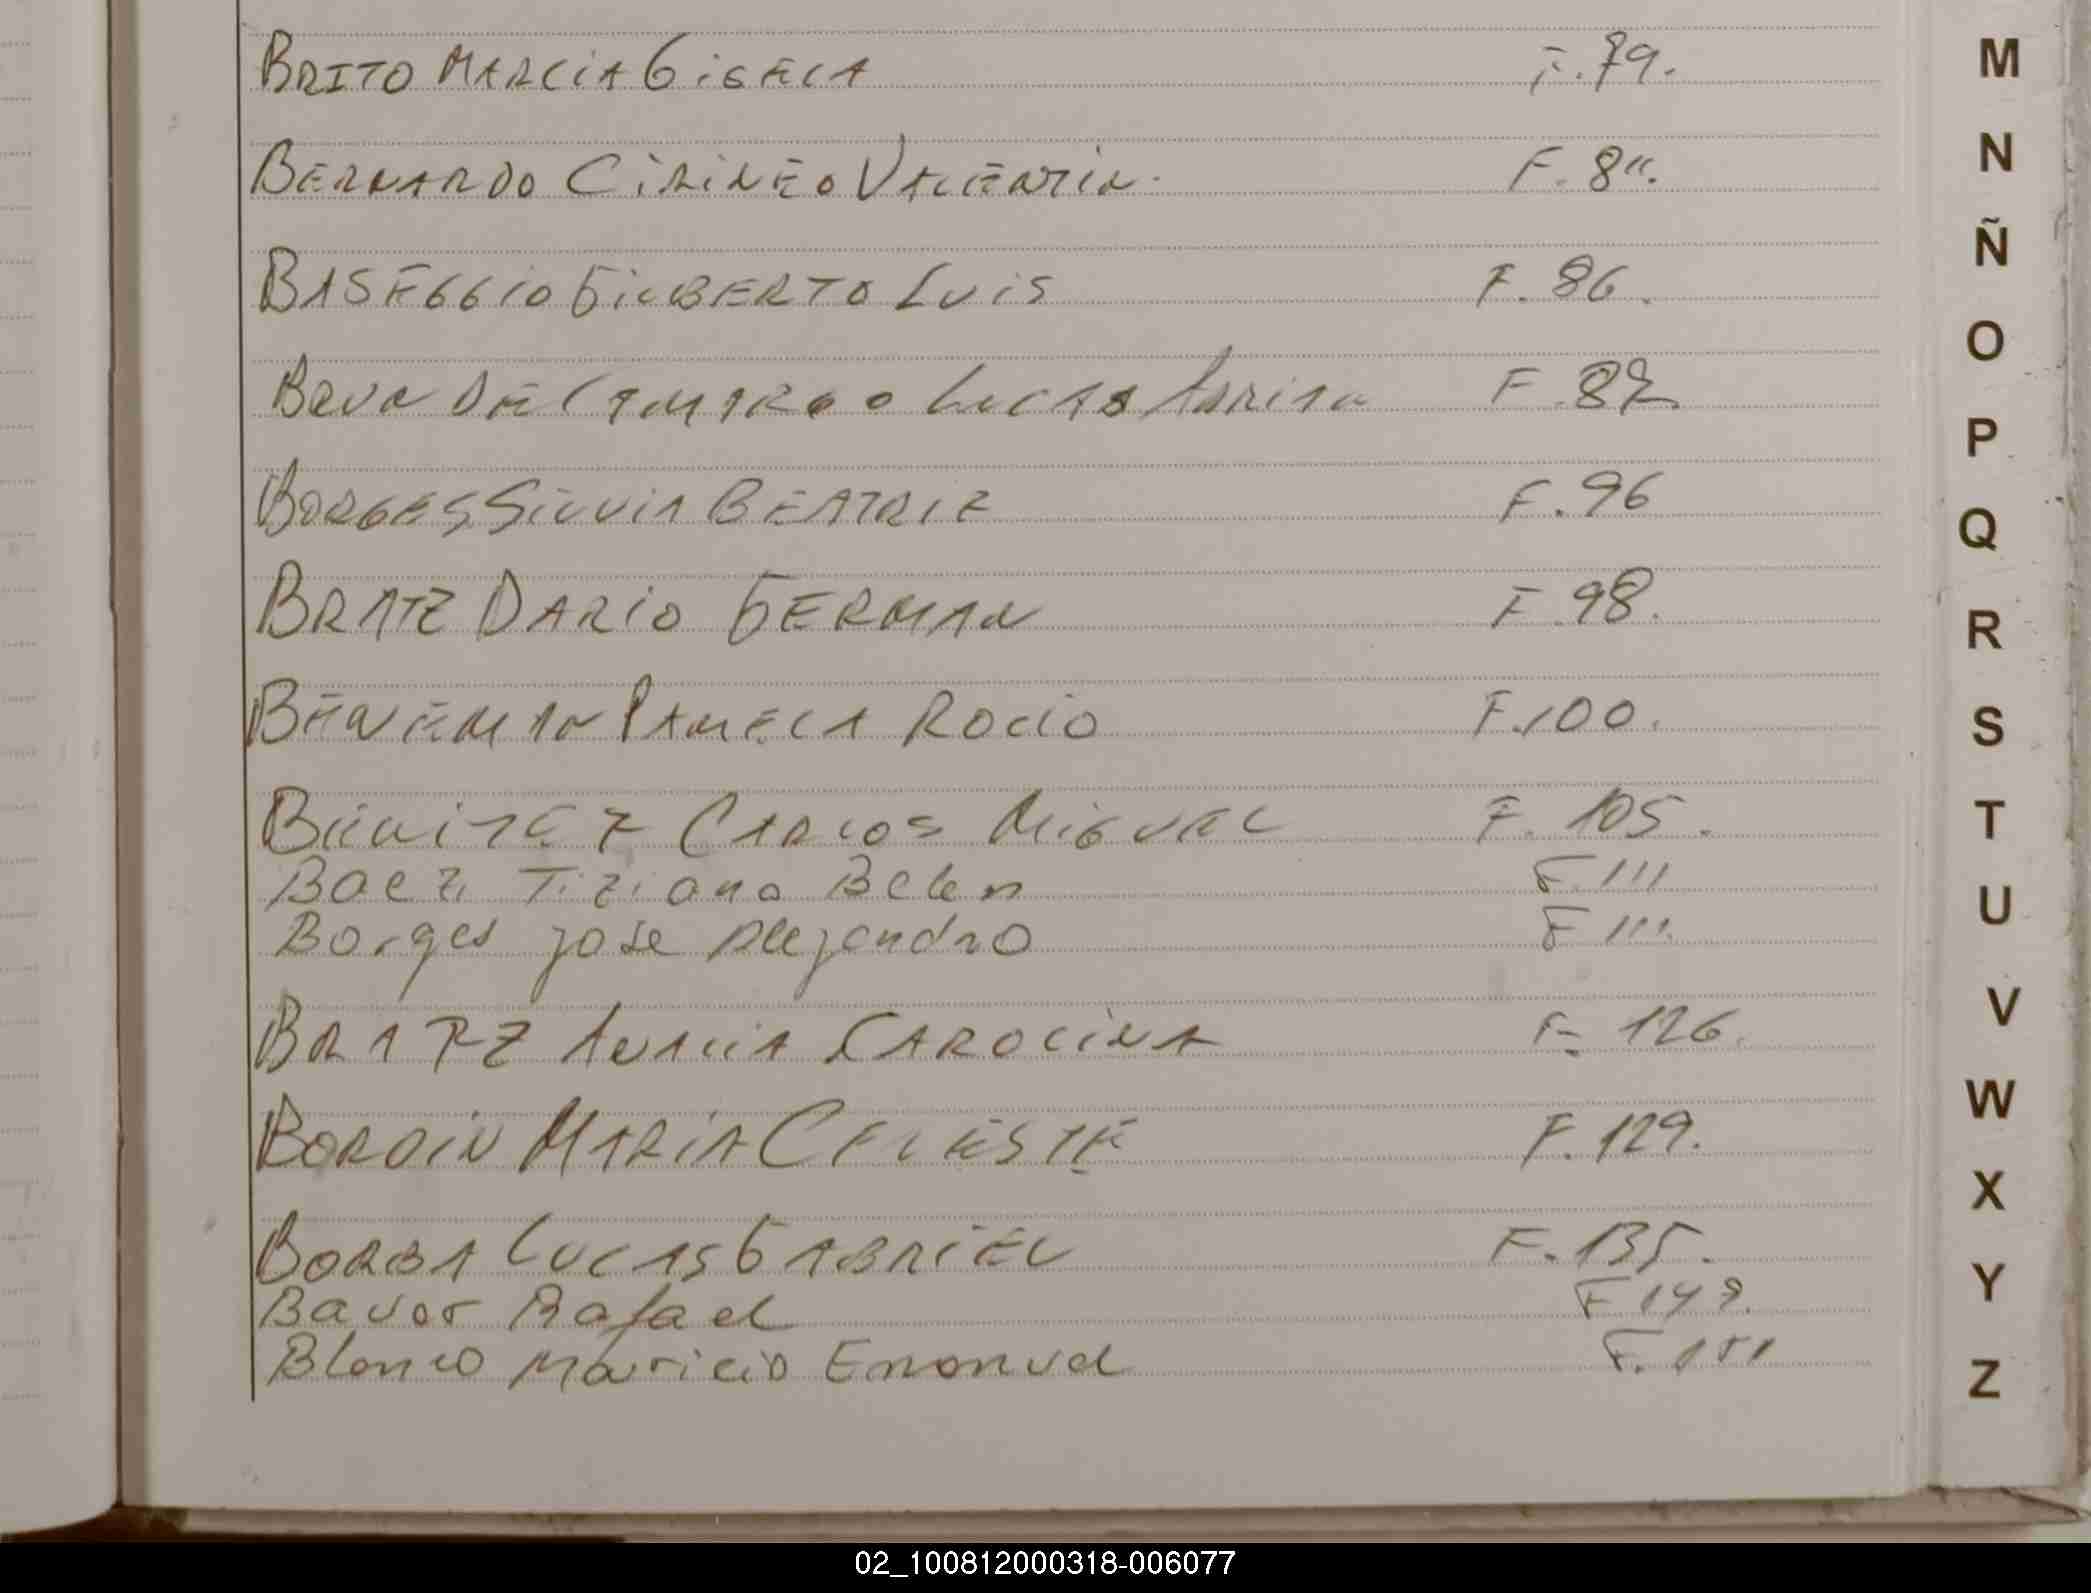 BRITO MARCIA GISELA F. 79.
BERNARDO CIRINEO VALENTIN. F. 84.
BASEGGIO GILBERTO LUIS F. 86.
DE CAMARGO LUCAS ADRIAN F. 87.
BORGES SILVIA BEATRIZ F. 96
BRATZ DARIO GERMAN F. 98.
BENEMAN PAMELA ROCIO F. 100.
BENITEZ CARLOS MIGUEL F. 105.
Baez Tiziana Belen F. 111
Borges jose Alejandro F 111.
BRATZ ANALIA CAROLINA F. 126.
BORDIN MARIA CELESTE F. 129.
BORBA LUCAS GABRIEL F. 135.
Rafael F
Blanco Mauricio Emanuel F. 151
M
N
Ñ
O
P
Q
R
S
T
U
V
W
X
Y
Z
02_100812000318-006077